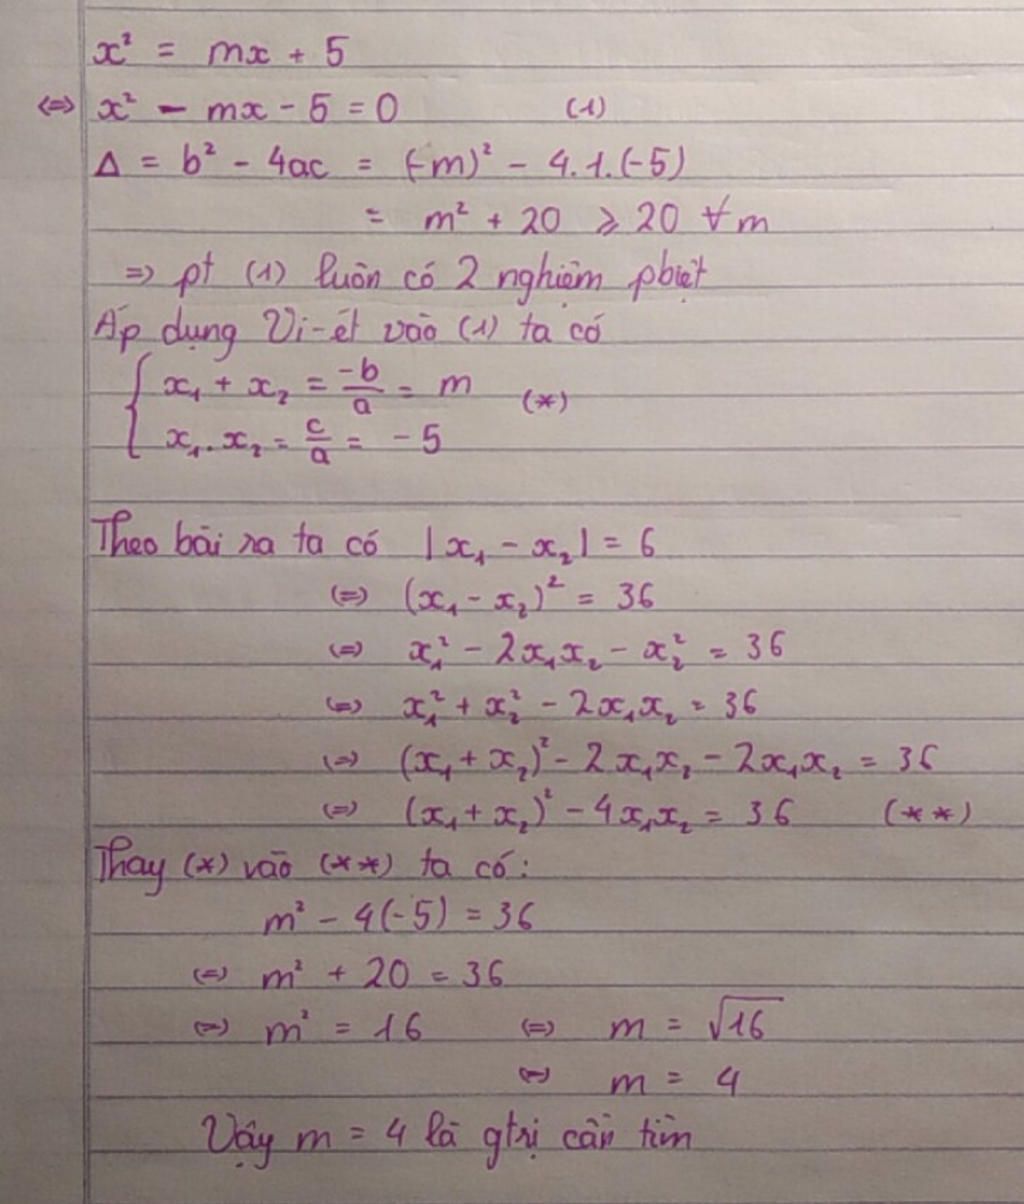 x² = mx + 5
⇔ x² - mx - 5 = 0 (1)
Δ = b² - 4ac = (-m)² - 4.1.(-5)
= m² + 20 ⩾ 20 ∀m
=> pt (1) luôn có 2 nghiệm pbiệt
Áp dụng Vi-ét vào (1) ta có
{ x₁ + x₂ = -b/a = m (*)
x₁.x₂ = c/a = -5
Theo bài ra ta có |x₁ - x₂| = 6
⇔ (x₁ - x₂)² = 36
⇔ x₁² - 2x₁x₂ - x₂² = 36
⇔ x₁² + x₂² - 2x₁x₂ = 36
⇔ (x₁ + x₂)² - 2x₁x₂ - 2x₁x₂ = 36
⇔ (x₁ + x₂)² - 4x₁x₂ = 36 (**)
Thay (*) vào (**) ta có:
m² - 4(-5) = 36
⇔ m² + 20 = 36
⇔ m² = 16 ⇔ m = √16
⇔ m = 4
Vậy m = 4 là gtrị cần tìm